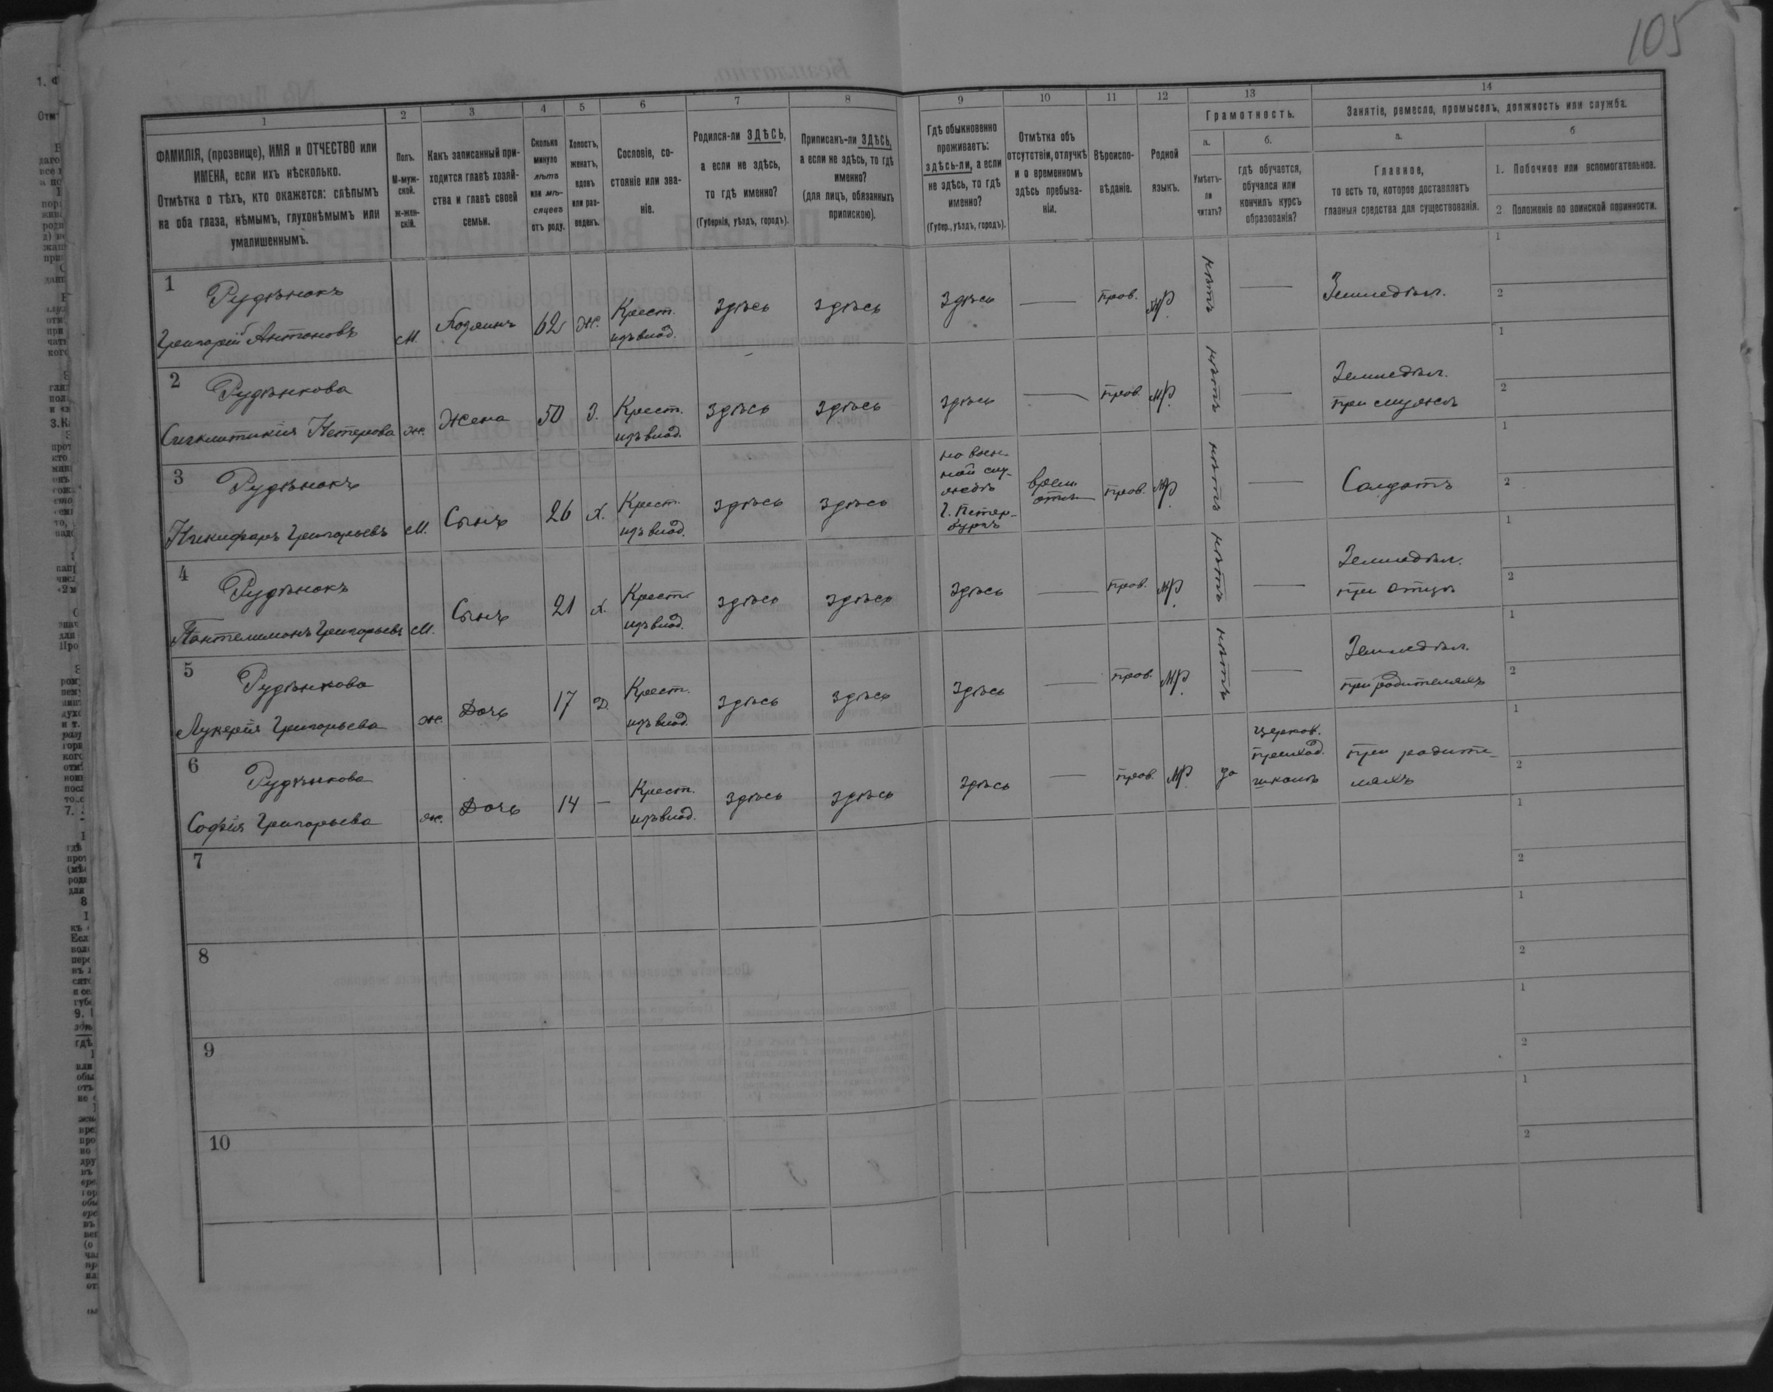 105
1
2
3
4
5
6
7
8
9
10
11
12
13
14
ФАМИЛІЯ, (прозвище), ИМЯ и ОТЧЕСТВО или
ИМЕНА, если ихъ нѣсколько.
Отмѣтка о тѣхъ, кто окажется: слѣпымъ
на оба глаза, нѣмымъ, глухонѣмымъ или
умалишеннымъ.
Полъ.
М-муж-
ской.
ж-жен-
скій.
Какъ записанный при-
ходится главѣ хозяй-
ства и главѣ своей
семьи.
Сколько
минуло
лѣтъ
или мѣ-
сяцевъ
отъ роду.
Холостъ,
женатъ,
вдовъ
или раз-
веденъ.
Сословіе, со-
стояніе или зва-
ніе.
Родился-ли ЗДѢСЬ,
а если не здѣсь,
то гдѣ именно?
(Губернія, уѣздъ, городъ).
Приписанъ-ли ЗДѢСЬ,
а если не здѣсь, то гдѣ
именно?
(для лицъ, обязанныхъ
припискою).
Гдѣ обыкновенно
проживаетъ:
здѣсь-ли, а если
не здѣсь, то гдѣ
именно?
(Губер., уѣздъ, городъ).
Отмѣтка объ
отсутствіи, отлучкѣ
и о временномъ
здѣсь пребыва-
ніи.
Вѣроиспо-
вѣданіе.
Родной
языкъ.
Грамотность.
а.
Умѣетъ-
ли
читать?
б.
гдѣ обучается,
обучался или
кончилъ курсъ
образованія?
Занятіе, ремесло, промыселъ, должность или служба.
а.
Главное,
то есть то, которое доставляетъ
главныя средства для существованія.
б
1. Побочное или вспомогательное.
2 Положеніе по воинской повинности.
1
Рудѣнокъ
Григорій Антоновъ
М.
Хозяинъ
62
Ж.
Крест.
изъ влад.
здѣсь
здѣсь
здѣсь
—
прав.
МР.
нѣтъ
—
Земледѣл.
1
2
2
Рудѣнкова
Синклитикія Нестерова
ж.
Жена
50
З.
Крест.
изъ влад.
здѣсь
здѣсь
здѣсь
—
прав.
МР.
нѣтъ
—
Земледѣл.
при мужѣ
1
2
3
Рудѣнокъ
Никифоръ Григорьевъ
М.
Сынъ
26
Х.
Крест.
изъ влад.
здѣсь
здѣсь
на воен-
ной слу-
жбѣ
г. Петер-
бургъ
врем.
отл.
прав.
МР.
нѣтъ
Солдатъ
1
2
4
Рудѣнокъ
Пантелимонъ Григорьевъ
М.
Сынъ
21
Х.
Крест.
изъ влад.
здѣсь
здѣсь
здѣсь
—
прав.
МР.
нѣтъ
—
Земледѣл.
при отцѣ
1
2
5
Рудѣнкова
Лукерія Григорьева
ж.
Дочь
17
Д.
Крест.
изъ влад.
здѣсь
здѣсь
здѣсь
—
прав.
МР.
нѣтъ
—
Земледѣл.
при родителяхъ
1
2
6
Рудѣнкова
Софія Григорьева
ж.
Дочь
14
—
Крест.
изъ влад.
здѣсь
здѣсь
здѣсь
—
прав.
МР.
да
церков.
приход.
школѣ
при родите-
ляхъ
1
2
7
1
2
8
1
2
9
1
2
10
1
2